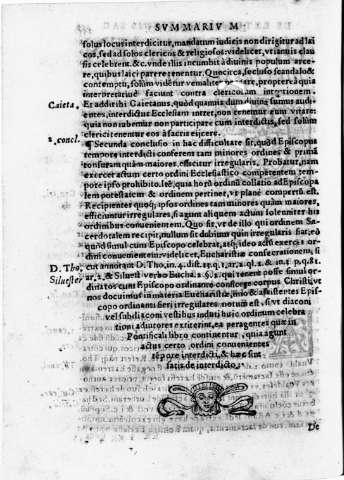 SVMMARIVM
solus locus interdicitur, mandatum iudicis non dirigitur ad lai
cos, sed ad solos clericos & religiosos videlicet, vt ianuis clau
sis celebrent. &c. vnde illis incumbit à diuinis populum arce
re, quibus laici parere tenentur. Quocirca, secluso scandalo &
contemptu, solùm videtur peccare, propterea quia
interpretatiuè faciunt contra clericorum intentionem.
Caieta. Et addit ibi Gaietanus, quòd quamuis dum diuina sumus audi
entes, interdictus Ecclesiam intret, non tenemur eum vitare:
quia non iubemur non participare cum interdictis, sed solùm
clerici tenentur eos à sacris eijcere.
2. concl. ¶ Secunda conclusio in hac difficultate sit, quòd Episcopus
tempore interdicti conferens tam minores ordines & primã
tonsuram quàm maiores efficitur irregularis. Probatur, nam
exercet actum certo ordini Ecclesiastico competentem tem
pore ipso prohibito. Itẽ, quia horũ ordinũ collatio ad Episcopa
lem potestatem & ordinem pertinet, vt planè compertũ est.
Recipientes quoq; ipsos ordines tam minores quàm maiores,
efficiuntur irregulares, si agunt aliquem actum solenniter his
ordinibus conuenientem. Quo fit, vt de illo qui ordinem Sa
cerdotalem recipit, nullum sit dubium quin irregularis fiat, eò
quòd simul cum Episcopo celebrat, atq; ideo actũ exercet
dini conuenientem, videlicet, Eucharistiæ consecrationem, si
D. Tho. cut annotant D. Tho. in 4. dist.
Siluester & Siluest. verbo Eucha. 2. qui tenent posse simul or
dinatos cum Episcopo ordinante consecrare corpus Christi, vt
nos docuimus in materia Eucharistiæ, assistentes Epis
copo ordinanti fieri irregulares notum est, si vt diaconi
vel subdiaconi vestibus induti huic ordinum celebra
tioni adiutores extiterint, ea peragentes quæ in
Pontificali libro continentur, quia agunt
actus certo ordini conuenientes
tẽpore interdicti, & hæc sint
satis de interdicto.
De